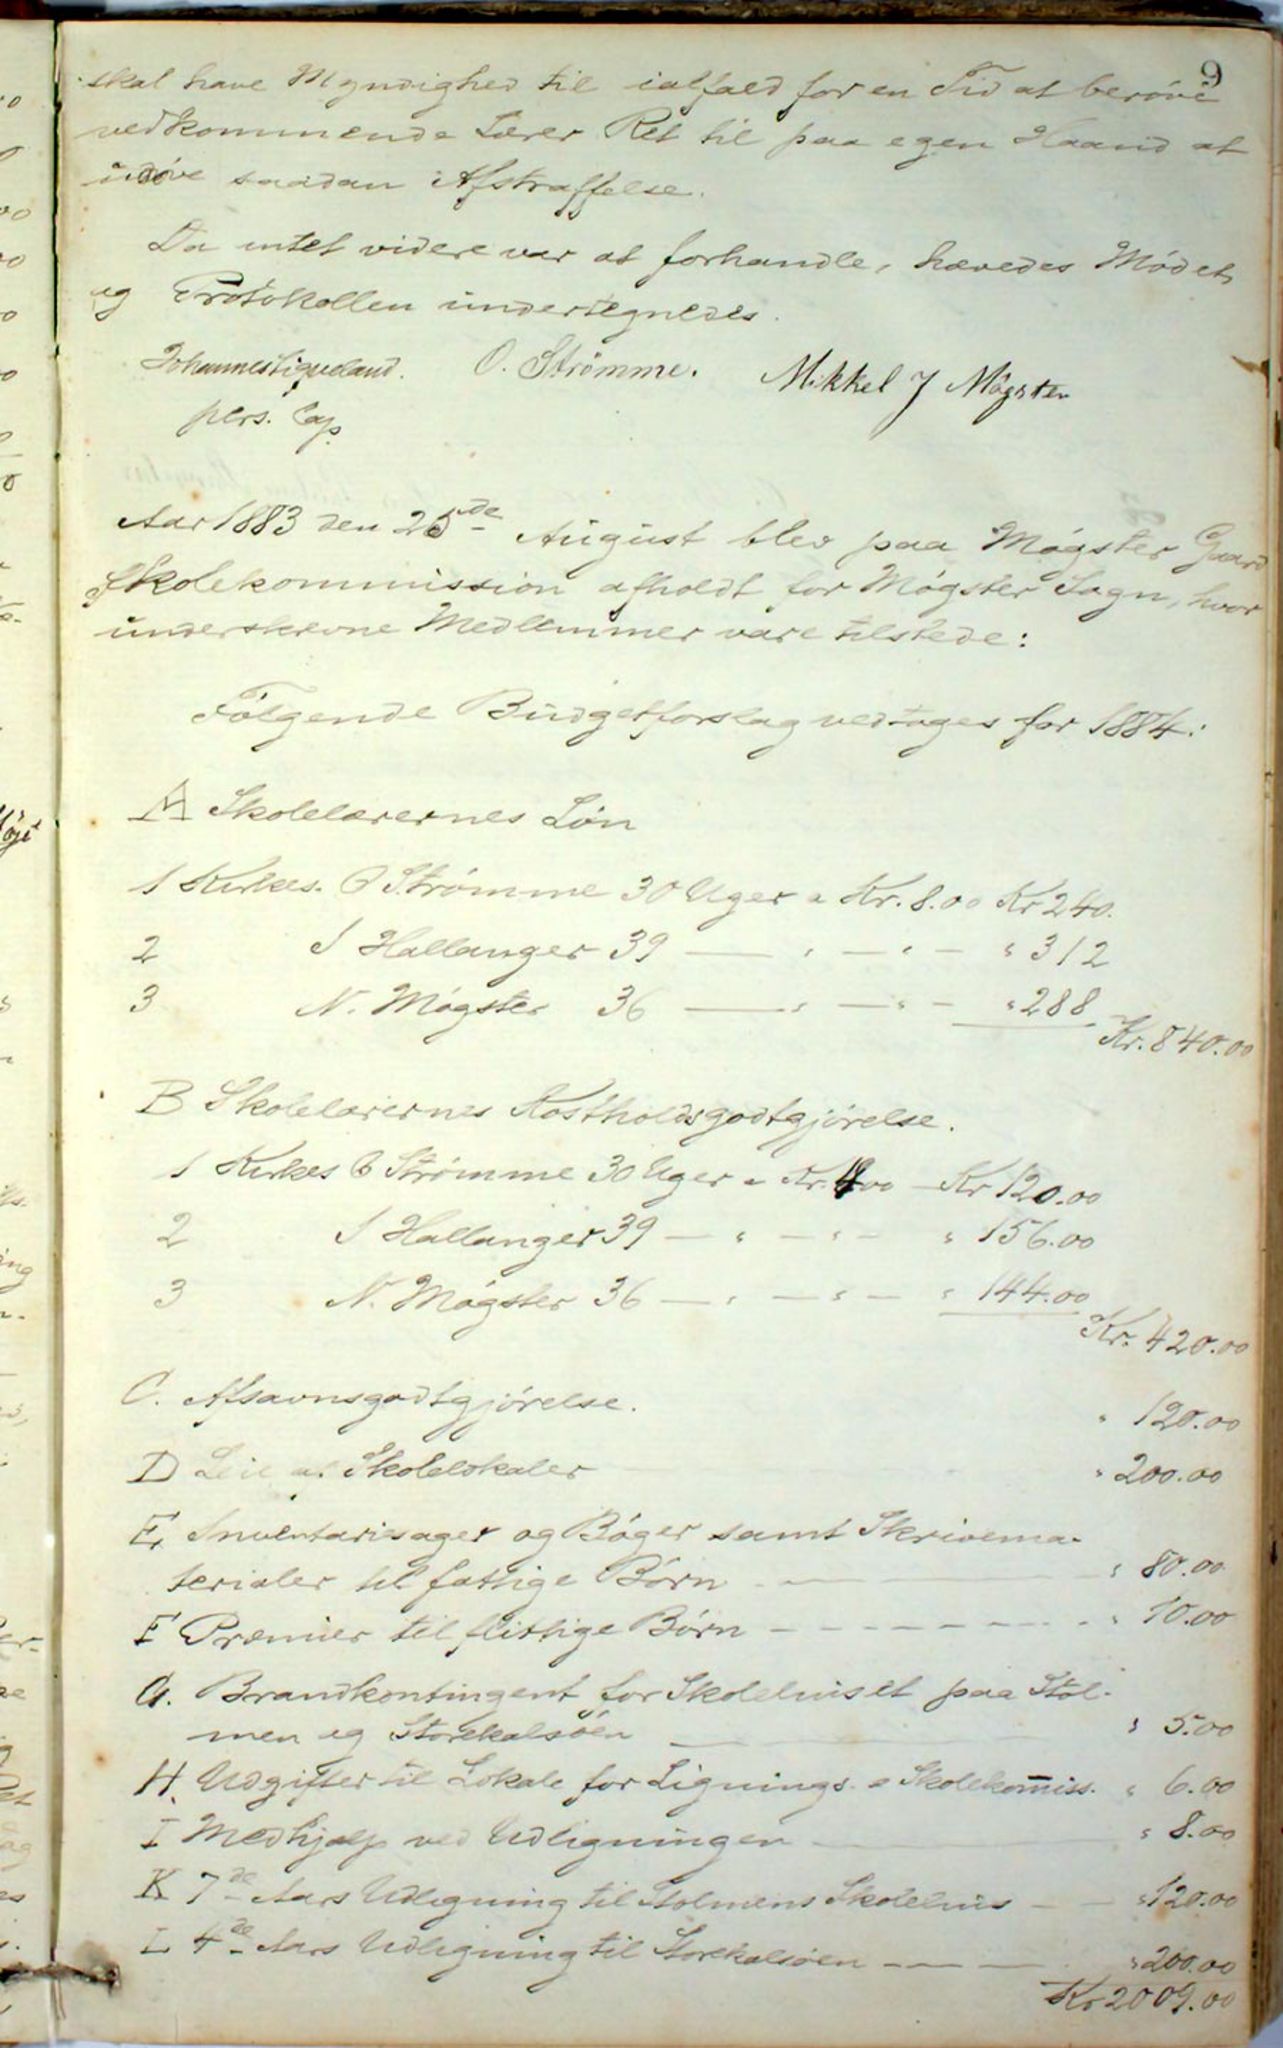 9
skal have Myndighed til ialfald for en Tid at berøve
vedkommende Lærer Ret til paa egen Haand at
udøve saadan Afstraffelse.
Da intet videre var at forhandle, hævedes Mødet,
og Protokollen undertegnedes.
Johannes Ligveland. O. Strömme. Mikkel J Møgster
pers. Cap
Aar 1883 den 25de August blev paa Møgster Gaard
Skolekommission afholdt for Møgster Sogn, hvor
underskrevne Medlemmer vare tilstede:
Følgende Budgetforslag vedtages for 1884:
A Skolelærernes Løn
1 Kirkes. O Strømme 30 Uger a Kr. 8.00 Kr 240.
2 J Hallanger 39 — " — " — " 312
3 N. Møgster 36 — " — " — " 288
Kr. 840.00
B Skolelærernes Kostholdsgodtgjørelse.
1 Kirkes O Strømme 30 Uger a Kr. 4.00 — Kr 120.00
2 J Hallanger 39 — " — " — " 156.00
3 N. Møgster 36 — " — " — " 144.00
Kr. 420.00
C. Afsavnsgodtgjørelse. " 120.00
D Leie af Skolelokaler " 200.00
E, Inventariesager og Bøger samt Skrivema-
terialer til fattige Børn — " 80.00
F Præmier til flittige Børn - - - - - - - " 10.00
G. Brandkontingent for Skolehuset paa Stol-
men og Storekalsøen — " 5.00
H. Udgifter til Lokale for Lignings- o Skolekom̅iss. " 6.00
I Medhjælp ved Udligningen — " 8.00
K 7de Aars Udligning til Stolmens Skolehus — — " 120.00
L 4de Aars Udligning til Storekalsøen — — — " 200.00
Kr 2009.00